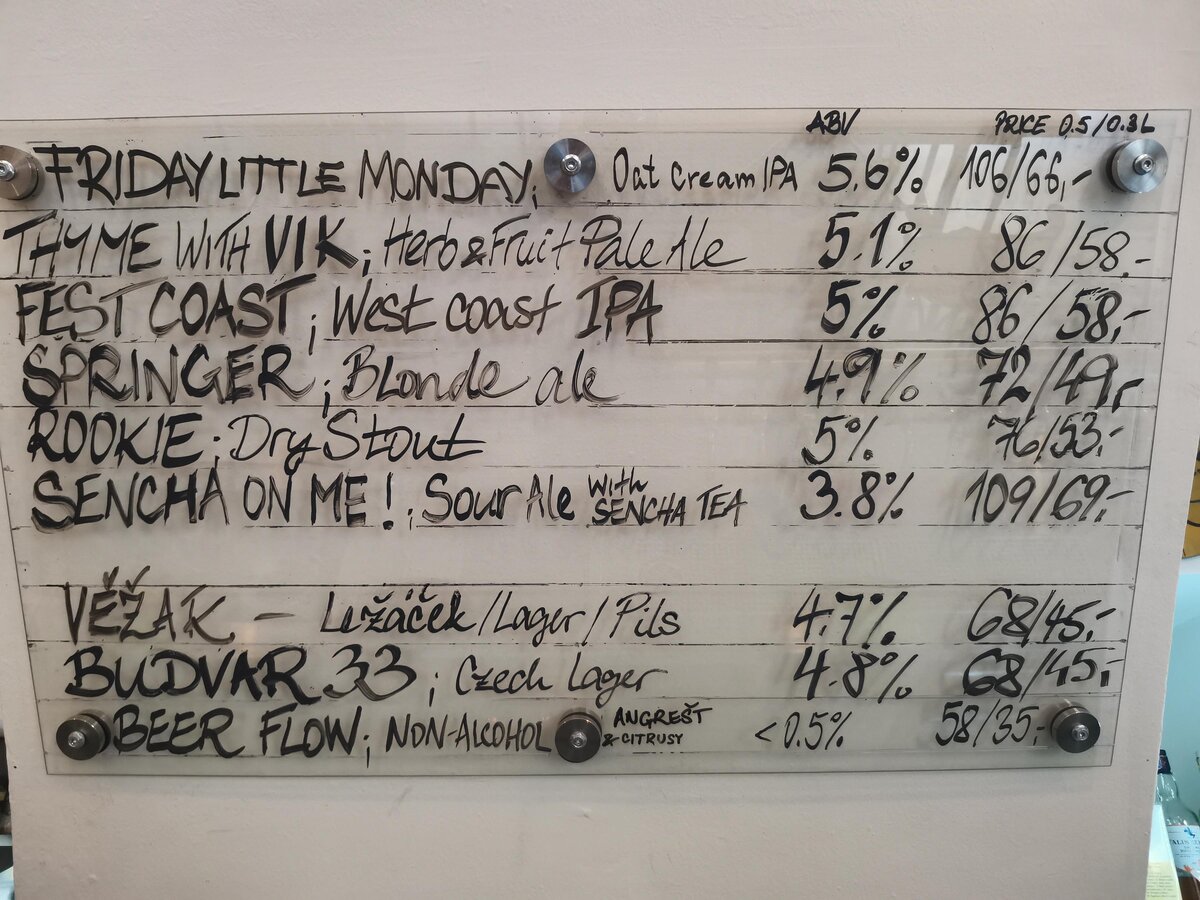 ABV PRICE 0.5/0.3L
FRIDAY LITTLE MONDAY; Oat Cream IPA 5.6% 106/66,-
THYME WITH VIK; Herb & Fruit Pale Ale 5.1% 86/58.-
FEST COAST; West coast IPA 5% 86/58,-
SPRINGER; Blonde ale 4.9% 72/49,-
ROOKIE; Dry Stout 5% 76/53.-
SENCHA ON ME!; Sour Ale with SENCHA TEA 3.8% 109/69.-
VĚŽÁK - Ležáček/Lager/Pils 4.7% 68/45,-
BUDVAR 33; Czech Lager 4.8% 68/45,-
BEER FLOW; NON-ALCOHOL ANGREŠT & CITRUSY <0.5% 58/35,-